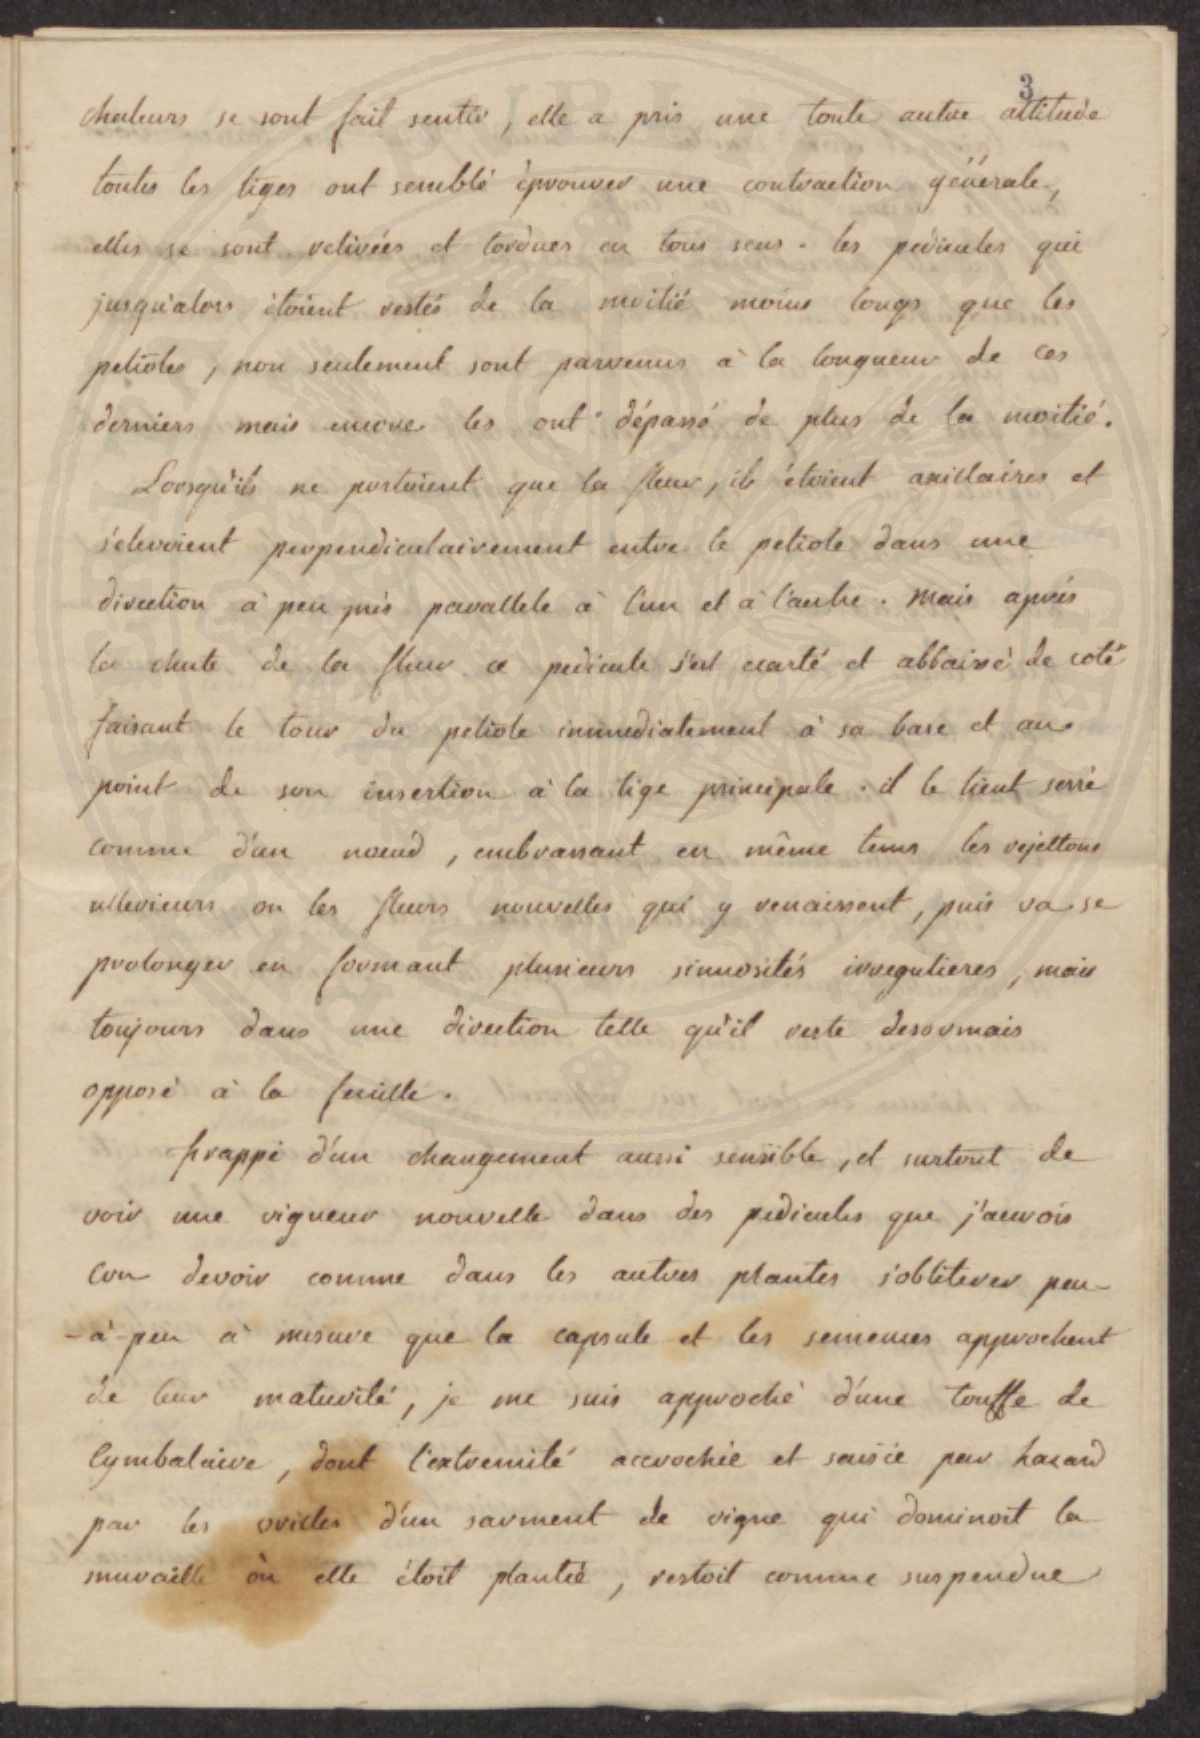 3
chaleurs se sont fait sentir, elle a pris une toute autre attitude
toutes les tiges ont semblé éprouver une contraction générale,
elles se sont retirées et tordues en tous sens. les pedicules qui
jusqu'alors étoient restés de la moitié moins longs que les
petioles, non seulement sont parvenus à la longueur de ces
derniers mais encore les ont dépassé de plus de la moitié.
Lorsqu'ils ne portoient que la fleur, ils étoient axillaires et
s'elevoient perpendiculairement entre le petiole dans une
direction à peu près parallele à l'un et à l'autre. Mais aprés
la chute de la fleur ce pedicule s'est ecarté et abbaissé de coté
faisant le tour du petiole immediatement à sa base et au
point de son insertion à la tige principale. il le tient serré
comme d'un noeud, embrassant en même tems les rejettons
ulterieurs ou les fleurs nouvelles qui y renaissent, puis va se
prolonger en formant plusieurs sinuosités irregulieres, mais
toujours dans une direction telle qu'il reste desormais
opposé à la feuille.
frappé d'un changement aussi sensible, et surtout de
voir une vigueur nouvelle dans des pedicules que j'aurois
cru devoir comme dans les autres plantes s'obliterer peu-
-à-peu à mesure que la capsule et les semences approchent
de leur maturité, je me suis approché d'une touffe de
Cymbalaire, dont l'extremité accrochée et saisie par hazard
par les vrilles d'un sarment de vigne qui dominoit la
muraille où elle étoit plantée, restoit comme suspendue